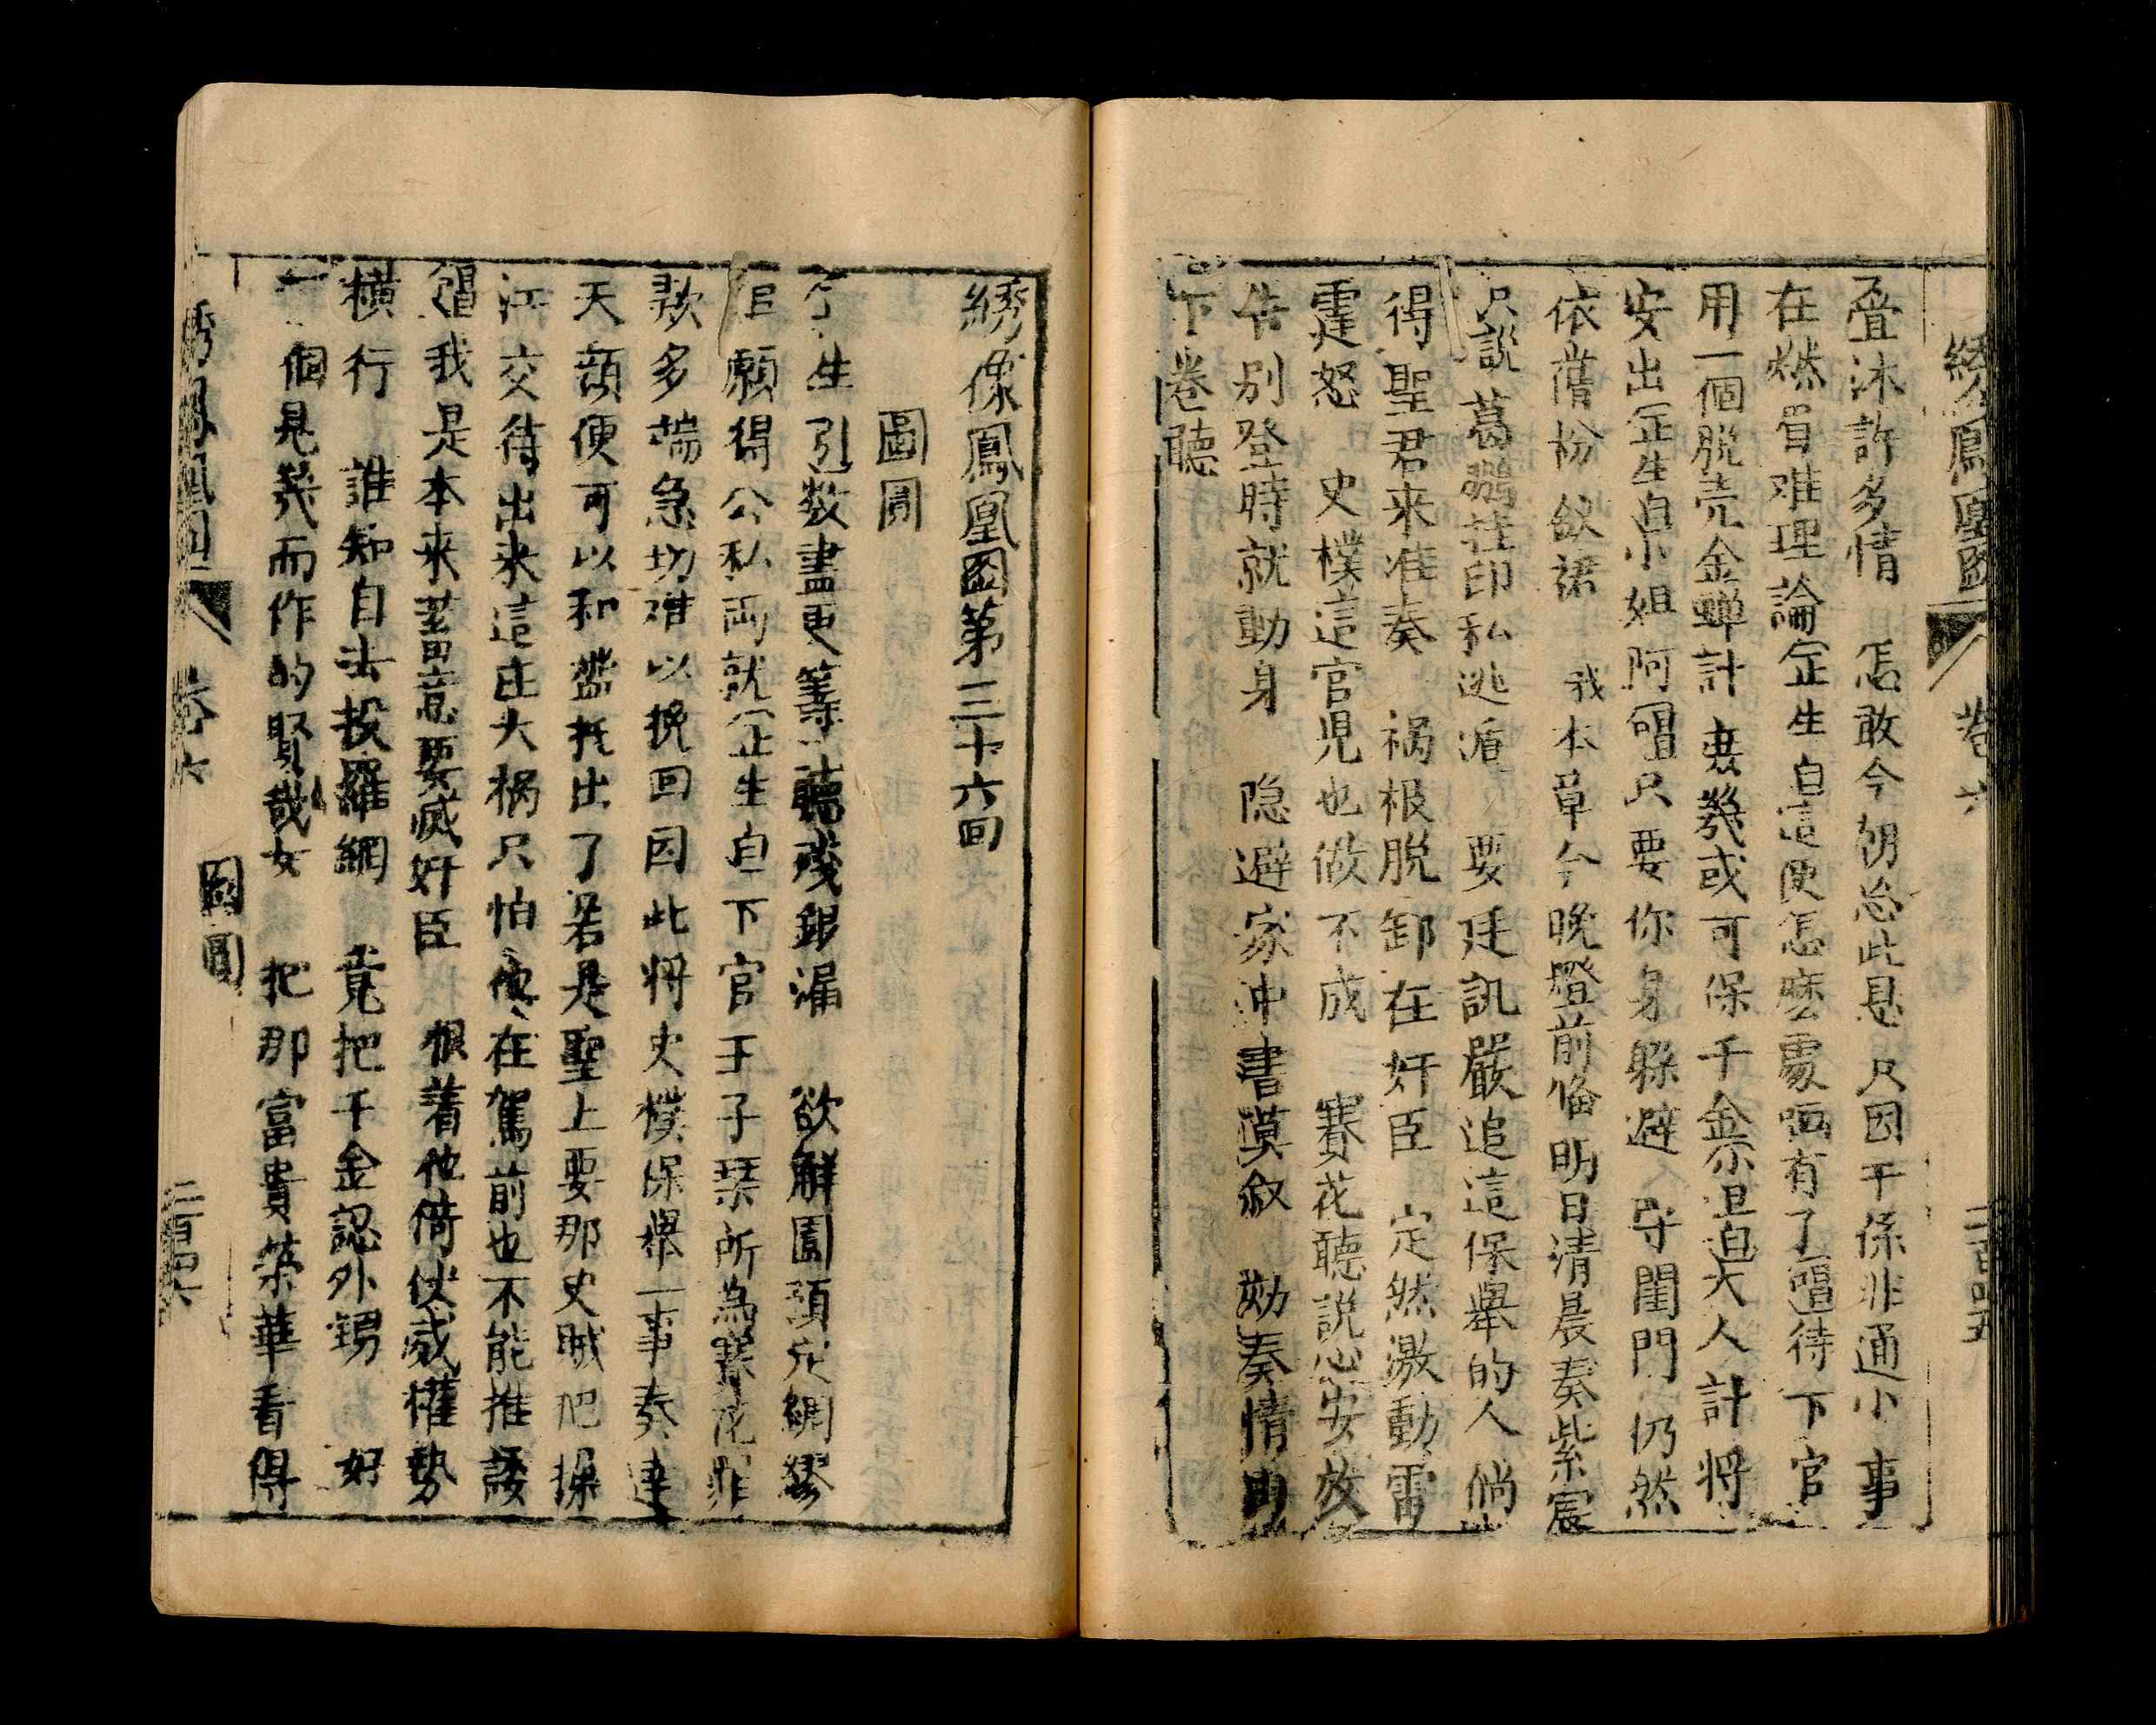 綉像鳳凰圖 卷六 二百四五
疊沐許多情 怎敢今朝忩此恳 只因干係非通小 事
在燃眉难理論正生白這便怎麽處嗄有了唱待下官
用一個脱壳金蝉計 妻幾或可保千金小旦白大人計将
安出正生白小姐阿唱只要你身躱避 守閨門仍然
依舊扮釵裙 我本章今晚燈前俻明日清晨奏紫宸
只説葛鵬挂印私逃遁 要廷訊嚴追這保舉的人倘
得聖君来准奏 禍根脱卸在奸臣 定然激動雷
霆怒 史樸這官児也做不成 賽花聽説心安放
告别登時就動身 隐避家中書漠叙 劾奏情由
下卷聽
綉像鳳凰图第三十六回
圖圓
生引数盡更筹聽殘銀漏 欲觧園頭網
願得公私両就正生白下官于子琹所為賽花
欵多端急切难以挽回因此将史樸保舉一事奏達
天顔便可以和盤托出了若是聖上要那史贼把操
江交待出来這庄大禍只怕他在駕前也不能推諉
唱我是本来蓄意要滅奸臣 恨着他倚伏威權勢
横行 誰知自去投羅網 竟把千金認外甥 好
一個見幾而作的賢哉女 把那富貴荣華看得
卷六 圖圓 二百四六